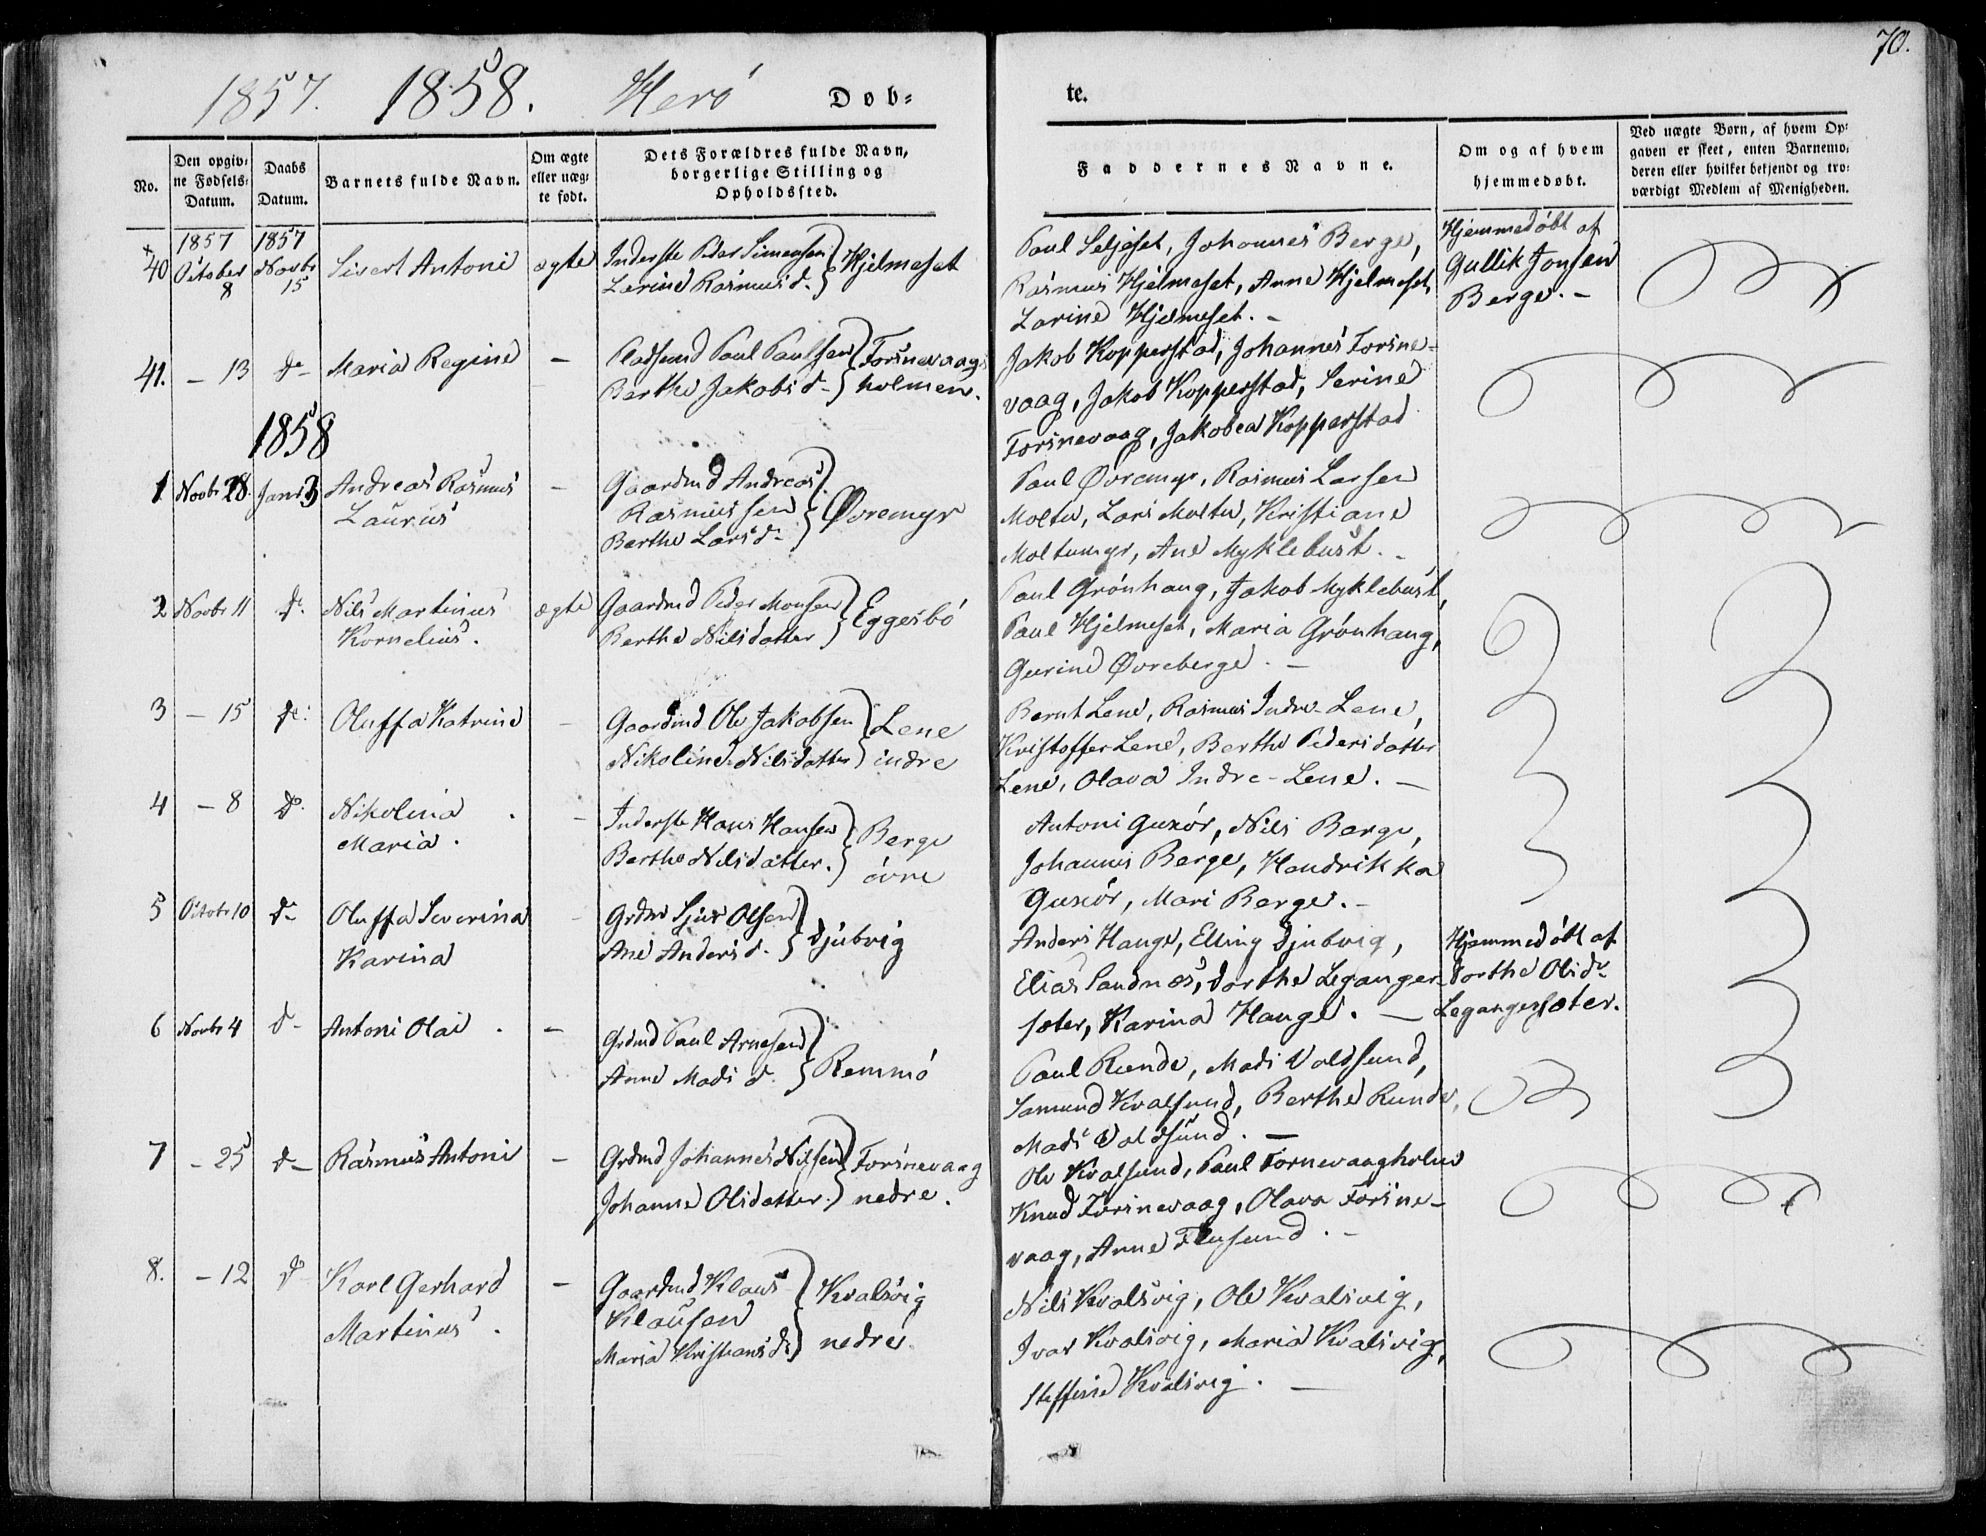 70.
1857. 1858. Herö Døb= te.
No.
Den opgiv=
ne Fødsels=
Datum.
Daabs
Datum.
Barnets fulde Navn.
Om ægte
eller uæg=
te født.
Dets Forældres fulde Navn,
borgerlige Stilling og
Opholdssted.
Faddernes Navne.
Om og af hvem
hjemmedøbt.
Ved uægte Børn, af hvem Op=
gaven er skeet, enten Barnemo=
deren eller hvilket bekjendt og tro=
værdigt Medlem af Menigheden.
40 1857 October 8 1857 Novbr 15 Sivert Antoni ægte
Inderste Peder Simensen
Serine Rasmusd.
Hjelmeset
Paul Seljeset, Johannes Berge,
Rasmus Hjelmeset, Anne Hjelmeset,
Larine Hjelmeset. -
Hjemmedöbt af
Gullik Jonsen
Berge. -
41. - 13 do Maria Regine -
Pladsmd Paul Paulsen
Berthe Jakobsd -
Torsnevaag=
holmen.
Jakob Kopperstad, Johannes Torsne-
vaag, Jakob Kopperstad, Serine
Torsnevaag, Jakobea Kopperstad
1858
1 Novbr 28. Janr 3 Andreas Rasmus
Laurus -
Gaardmd Andreas
Rasmussen
Berthe Larsd-
Øvremyr
Paul Øvremyr, Rasmus Larsen
Moltu, Lars Moltu, Kristiane
Moltumyr, Ane Myklebust. -
2 Novbr 11 do Nils Martinus
Kornelius. ægte
Gaardmd Peder Monsen
Berthe Nilsdatter
Eggesbö
Paul Grönhaug, Jakob Myklebust,
Paul Hjelmeset, Maria Grönhaug,
Gurine Øvreberge. -
3 - 15 do Oluffa Katrine -
Gaardmd Ole Jakobsen
Nikoline Nilsdatter
Lene
indre
Bernt Lene, Rasmus Indre-Lene,
Kristoffer Lene, Berthe Pedersdatter
Lene, Olava Indre-Lene. -
4 - 8 do Nikolina
Maria. -
Inderste Hans Hansen
Berthe Nilsdatter.
Berge
övre
Antoni Gursör, Nils Berge,
Johannes Berge, Hendrikka
Gursör, Mari Berge. -
5 Octobr 10 do Oluffa Severina
Karina -
Grdmd Sjur Olsen
Ane Andersd.
Djubvig
Anders Hauge, Elling Djubvig,
Elias Sandnæs, Dorthe Leganger-
sæter, Karina Hauge. -
Hjemmedöbt af
Dorthe Olsdr
Legangersæter.
6 Novbr 4 do Antoni Olai. -
Grdmd Paul Arnesen
Anne Madsd.
Remmö
Paul Runde, Mads Voldsund,
Samund Kvalsund, Berthe Runde,
Mads Voldsund. -
7 - 25 do Rasmus Antoni -
Grdmd Johannes Nilsen
Johanne Olsdatter.
Torsnevaag
nedre.
Ole Kvalsund, Paul Tornevaagholm
Knud Torsnevaag, Olava Torsne-
vaag, Anne Flusund. -
8. - 12 do Karl Gerhard
Martinus. -
Gaardmd Klaus
Klausen
Maria Kristiansdr
Kvalsvig
nedre.
Nils Kvalsvig, Ole Kvalsvig,
Ivar Kvalsvig, Maria Kvalsvig,
Steffine Kvalsvig. -